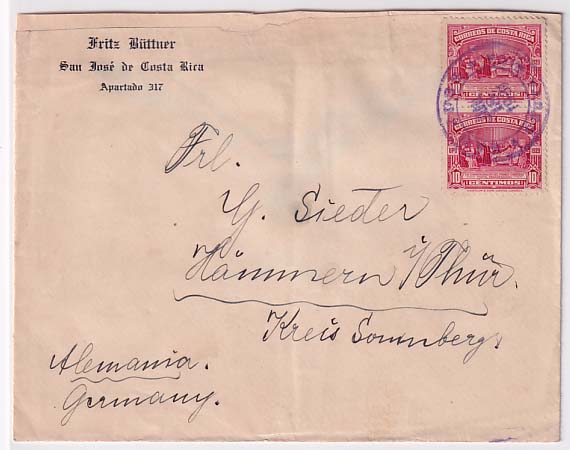 Fritz Büttner
San José de Costa Rica
Apartado 317
CORREOS DE COSTA RICA
10 10
CENTIMOS
CORREOS DE COSTA RICA
10 10
CENTIMOS
Frl.
G. Sieder
Hämmern i/Thür.
Kreis Sonnberg,
Alemania.
Germany.